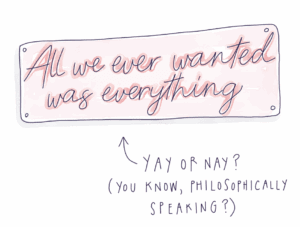 All we ever wanted
was everything
YAY OR NAY?
(YOU KNOW, PHILOSOPHICALLY
SPEAKING?)